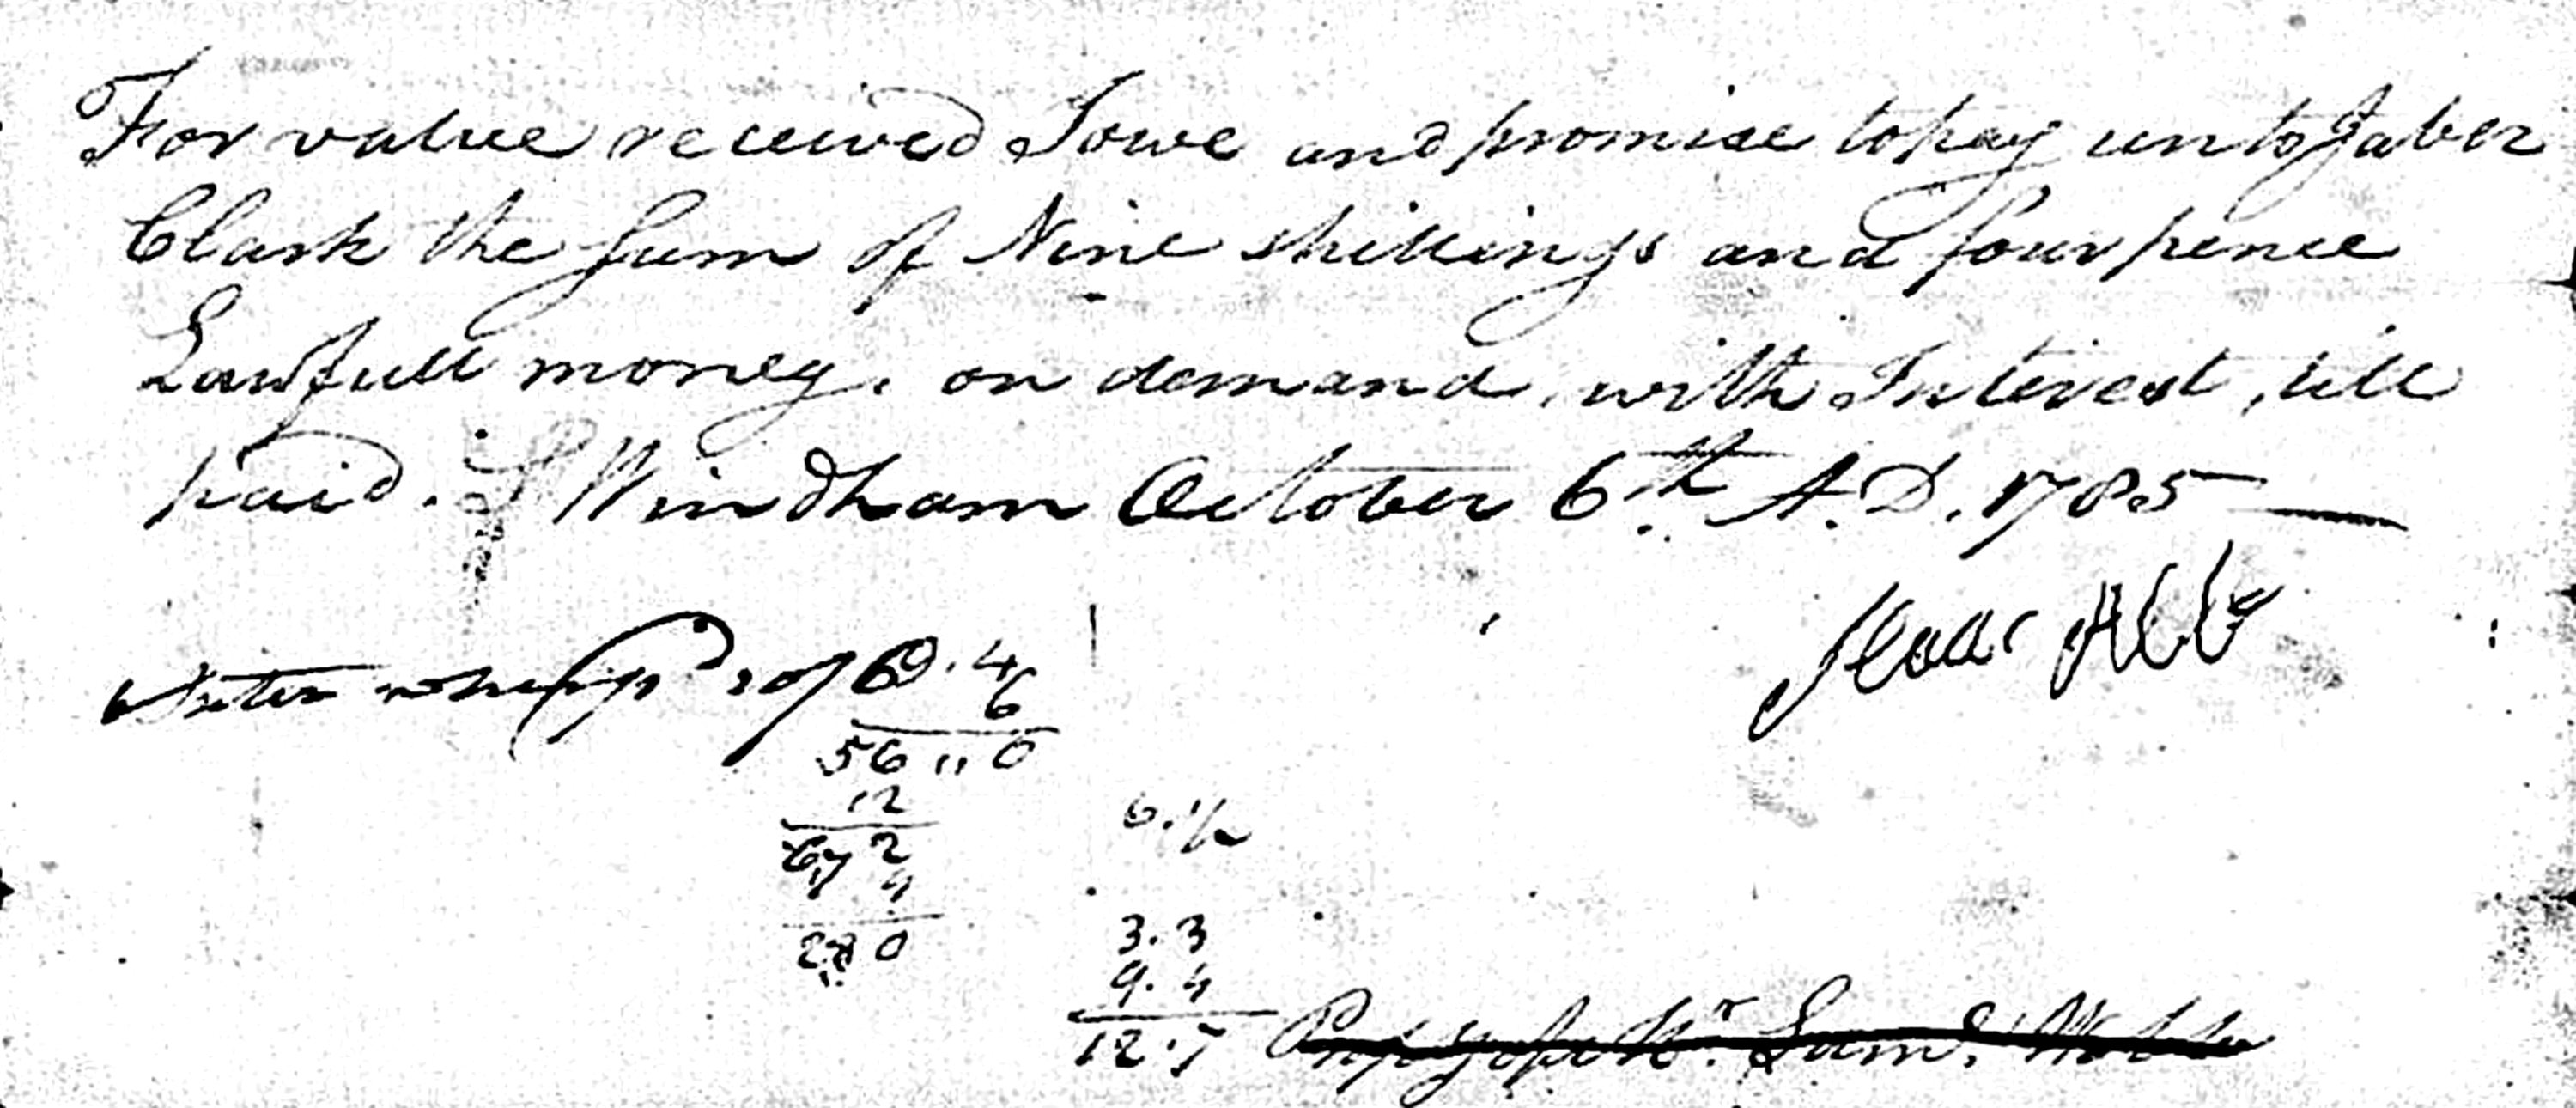 For value received I owe and promise to pay unto Jabez
Clark the Sum of Nine shillings and four pence
Lawfull money, on demand, with Interest, till
paid. Windham October 6th. A.D. 1785
Isaac Abbe
9.4
6
56 " 0
12
67 2
4
6.1/2
28 0
3.3
9.4
12.7 Mr. Saml.